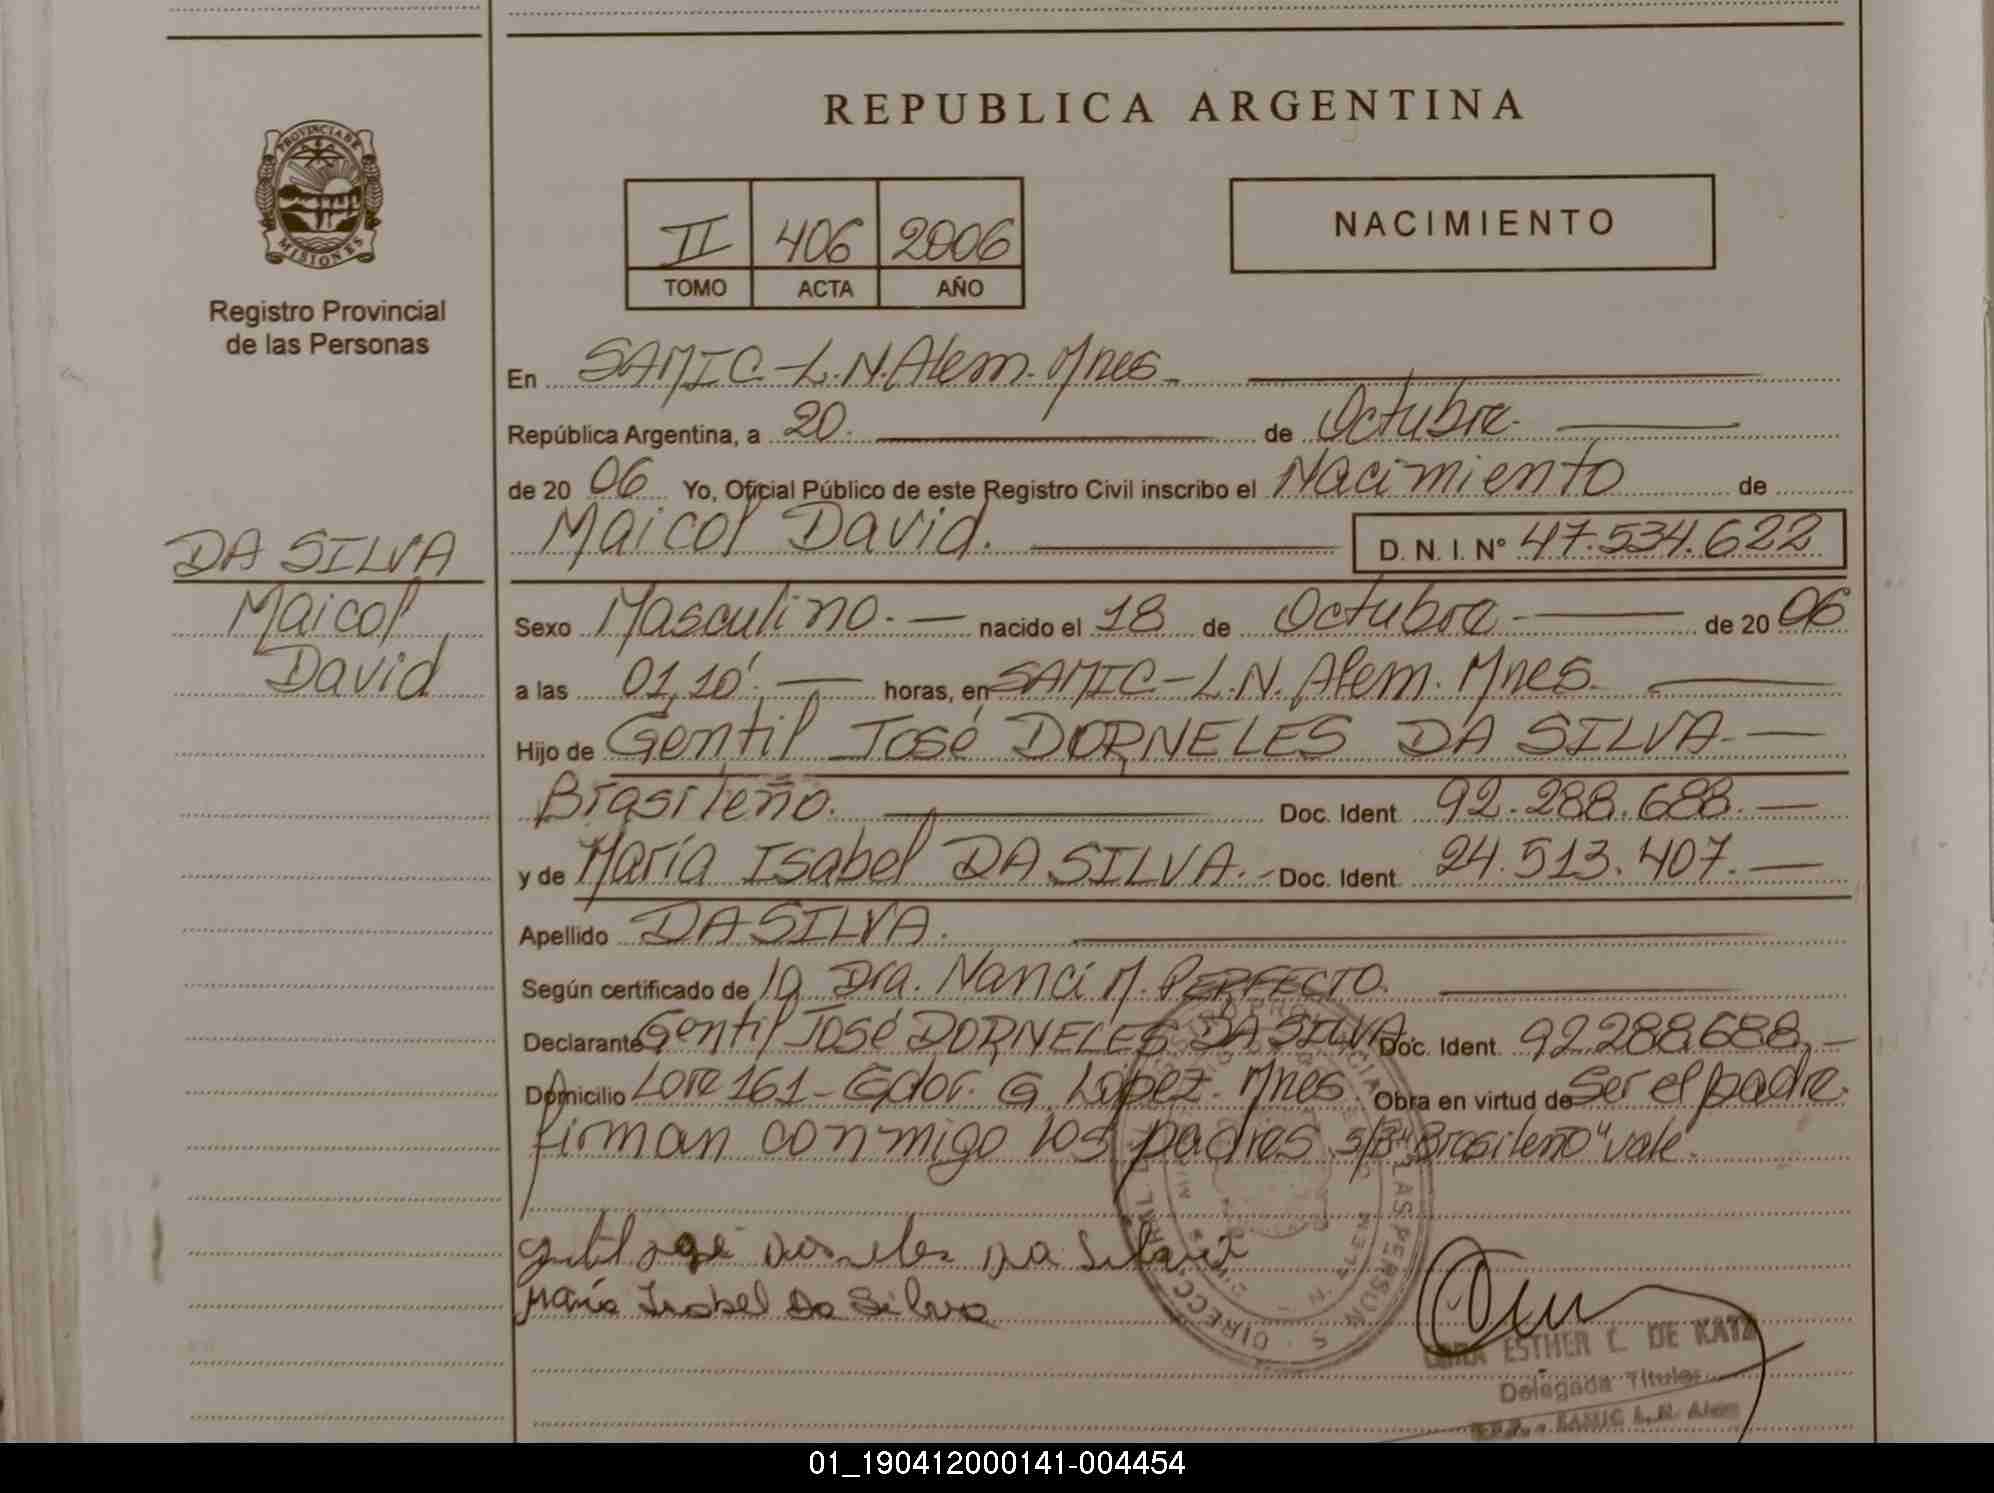 REPUBLICA ARGENTINA
PROVINCIA DE
MISIONES
Registro Provincial
de las Personas
II 406 2006
TOMO ACTA AÑO
NACIMIENTO
En SAMIC-L.N.Alem. Mnes.
República Argentina, a 20. de Octubre.
de 20 06 Yo, Oficial Público de este Registro Civil inscribo el Nacimiento de
Maicol David. D. N. I. Nº 47.534.622
DA SILVA
Maicol
David
Sexo Masculino. nacido el 18 de Octubre de 20 06
a las 01,10'. horas, en SAMIC-L.N. Alem. Mnes.
Hijo de Gentil José DORNELES DA SILVA.
Brasileño. Doc. Ident. 92.288.688.
y de María Isabel DA SILVA. Doc. Ident. 24.513.407.
Apellido DA SILVA.
Según certificado de la Dra. Nanci M. PERFECTO.
Declarante Gentil José DORNELES DA SILVA. Doc. Ident. 92.288.688.
Domicilio Lote 161-Gdor. G. Lopez. Mnes. Obra en virtud de Ser el padre.
firman conmigo los padres s/B "Brasileño" vale.
Gentil José Dorneles Da Silva
María Isabel Da Silva
ESTHER C. DE KATZ
Delegada Titular
SAMIC L.N. Alem
01_190412000141-004454